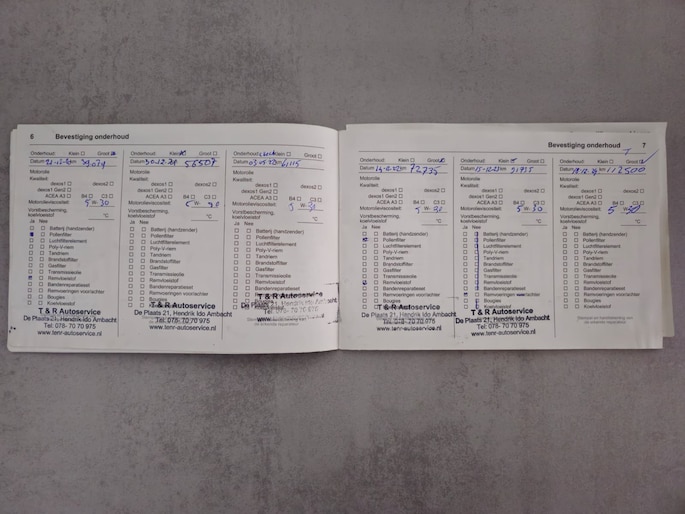 6 Bevestiging onderhoud
Onderhoud: Klein Groot
Datum km 39079
Motorolie
Kwaliteit:
dexos1 dexos2
dexos1 Gen2
ACEA A3 B4 C3
Motorolieviscositeit: 5 W- 30
Vorstbescherming, °C
koelvloeistof
Ja Nee
Batterij (handzender)
Pollenfilter
Luchtfilterelement
Poly-V-riem
Tandriem
Brandstoffilter
Gasfilter
Transmissieolie
Remvloeistof
Bandenreparatieset
Remvoeringen voor/achter
Bougies
Koelvloeistof
T & R Autoservice
De Plaats 21, Hendrik Ido Ambacht
Tel: 078- 70 70 975
www.tenr-autoservice.nl
Onderhoud: Klein Groot
Datum 30-12-20 km 56507
Motorolie
Kwaliteit:
dexos1 dexos2
dexos1 Gen2
ACEA A3 B4 C3
Motorolieviscositeit: 5 W- 30
Vorstbescherming, °C
koelvloeistof
Ja Nee
Batterij (handzender)
Pollenfilter
Luchtfilterelement
Poly-V-riem
Tandriem
Brandstoffilter
Gasfilter
Transmissieolie
Remvloeistof
Bandenreparatieset
Remvoeringen voor/achter
Bougies
T & R Autoservice
De Plaats 21, Hendrik Ido Ambacht
Tel: 078- 70 70 975
www.tenr-autoservice.nl
Onderhoud: Klein Groot
Datum km
Motorolie
Kwaliteit:
dexos1 dexos2
dexos1 Gen2
ACEA A3 B4 C3
Motorolieviscositeit: 5 W- 30
Vorstbescherming, °C
koelvloeistof
Ja Nee
Batterij (handzender)
Pollenfilter
Luchtfilterelement
Poly-V-riem
Tandriem
Brandstoffilter
Gasfilter
Transmissieolie
Remvloeistof
Bandenreparatieset
T & R Autoservice
De Plaats 21, Hendrik Ido Ambacht
Tel: 078- 70 70
Bevestiging onderhoud 7
Onderhoud: Klein Groot
Datum km 72735
Motorolie
Kwaliteit:
dexos1 dexos2
dexos1 Gen2
ACEA A3 B4 C3
Motorolieviscositeit: 5 W- 30
Vorstbescherming, °C
koelvloeistof
Ja Nee
Batterij (handzender)
Pollenfilter
Luchtfilterelement
Poly-V-riem
Tandriem
Brandstoffilter
Gasfilter
Transmissieolie
Remvloeistof
Bandenreparatieset
Remvoeringen voor/achter
Bougies
T & R Autoservice
De Plaats 21, Hendrik Ido Ambacht
Tel: 078- 70 70 975
www.tenr-autoservice.nl
Onderhoud: Klein Groot
Datum km
Motorolie
Kwaliteit:
dexos1 dexos2
dexos1 Gen2
ACEA A3 B4 C3
Motorolieviscositeit: 5 W- 30
Vorstbescherming, °C
koelvloeistof
Ja Nee
Batterij (handzender)
Pollenfilter
Luchtfilterelement
Poly-V-riem
Tandriem
Brandstoffilter
Gasfilter
Transmissieolie
Remvloeistof
Bandenreparatieset
Remvoeringen voor/achter
Bougies
Koelvloeistof
T & R Autoservice
De Plaats 21, Hendrik Ido Ambacht
Tel: 078- 70 70 975
www.tenr-autoservice.nl
Onderhoud: Klein Groot
Datum km 112500
Motorolie
Kwaliteit:
dexos1 dexos2
dexos1 Gen2
ACEA A3 B4 C3
Motorolieviscositeit: 5 W- 30
Vorstbescherming, °C
koelvloeistof
Ja Nee
Batterij (handzender)
Pollenfilter
Luchtfilterelement
Poly-V-riem
Tandriem
Brandstoffilter
Gasfilter
Transmissieolie
Remvloeistof
Bandenreparatieset
Remvoeringen voor/achter
Bougies
Koelvloeistof
Stempel en handtekening van
de erkende reparateur